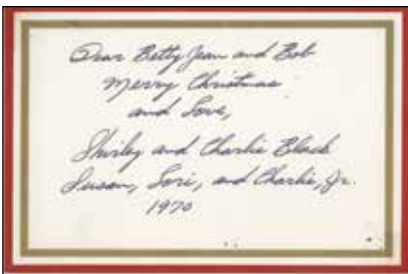 Dear Betty Jean and Bob
Merry Christmas
and Love,
Shirley and Charlie Black
Susan, Lori, and Charlie, Jr.
1970